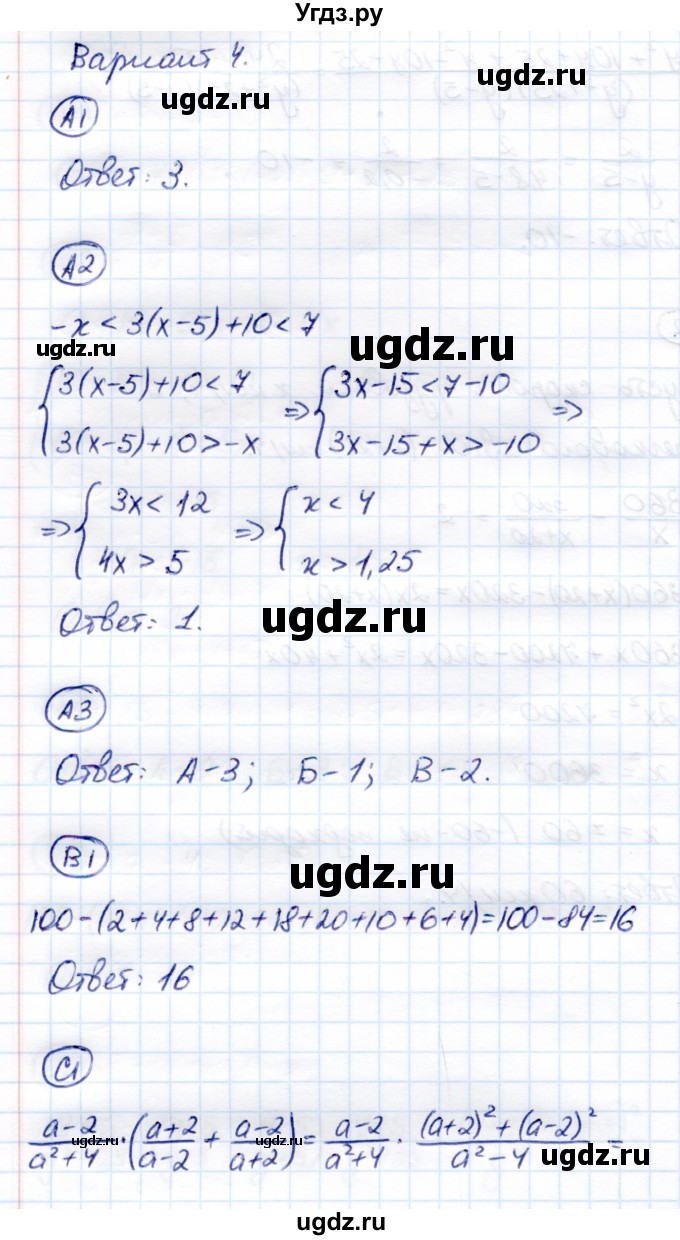 Угдз.ру
Вариант 4.
ugdz.ru
А1
Ответ: 3.
А2
-x < 3(x-5)+10 < 7
ugdz.ru ugdz.ru
{3(x-5)+10<7 => {3x-15<7-10 =>
{3(x-5)+10>-x {3x-15+x>-10
=> {3x<12 => {x<4
{4x>5 {x>1,25
Ответ: 1.
ugdz.ru
А3
Ответ: А-3; Б-1; В-2.
В1
ugdz.ru
100-(2+4+8+12+18+20+10+6+4)=100-84=16
Ответ: 16
С1
(a-2)/(a²+4)·((a+2)/(a-2)+(a-2)/(a+2))=(a-2)/(a²+4)·((a+2)²+(a-2)²)/(a²-4)=
ugdz.ru ugdz.ru ugdz.ru
ugdz.ru